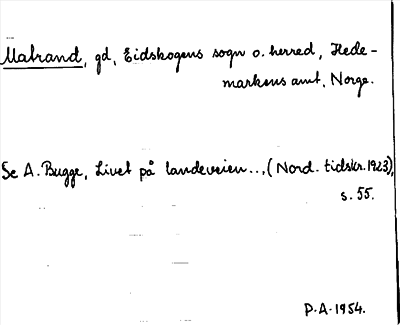 Matrand, gd, Eidskogens sogn o. herred, Hede-
markens amt, Norge.
Se A. Bugge, Livet på landeveien..,(Nord. tidskr. 1923),
s. 55.
P.A. 1954.